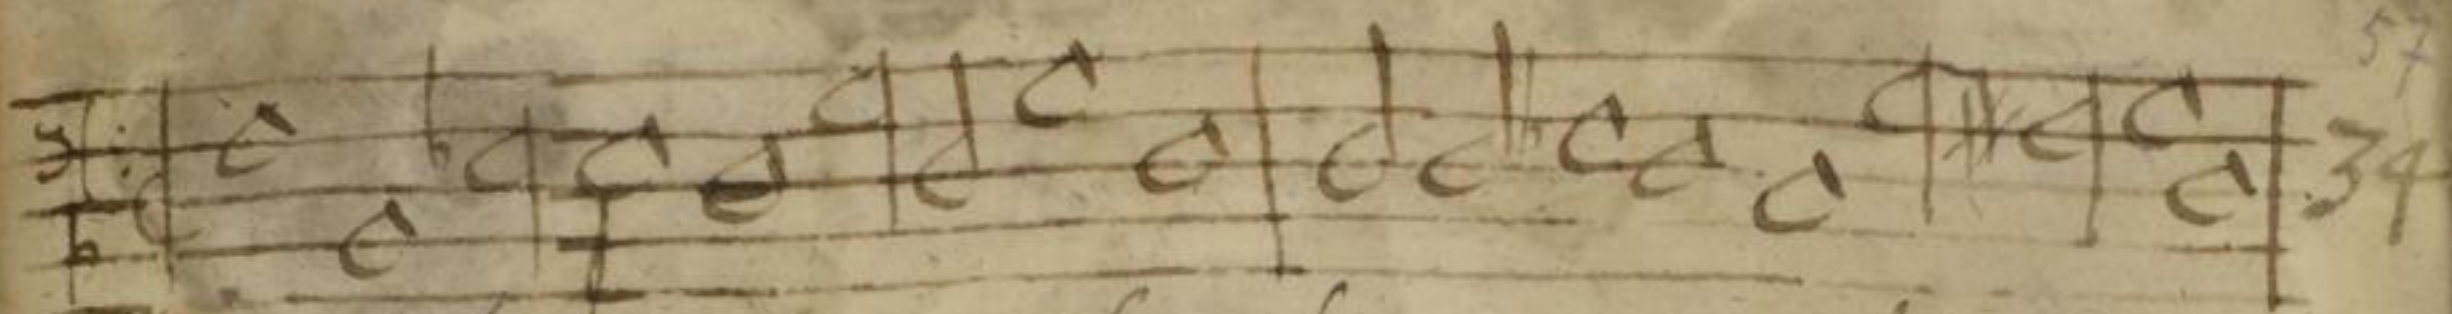 57
34